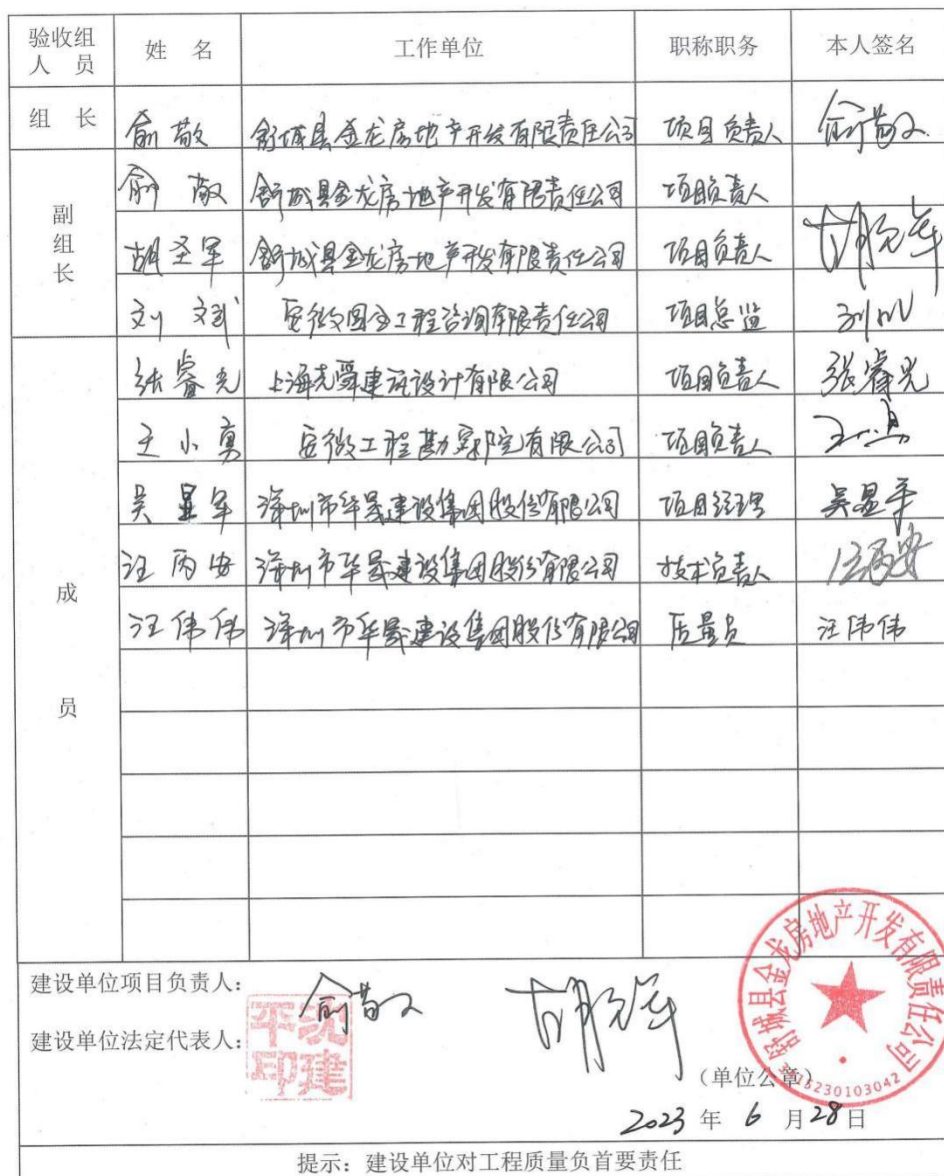 验收组人 员 姓 名 工作单位 职称职务 本人签名
组 长 俞敬 舒城县金龙房地产开发有限责任公司 项目负责人 俞敬
副组长
俞敬 舒城县金龙房地产开发有限责任公司 项目负责人
胡圣军 舒城县金龙房地产开发有限责任公司 项目负责人 胡圣军
刘斌 有限责任公司 项目总监
成员
张睿光 上海尧舜建筑设计有限公司 项目负责人 张睿光
王小勇 安徽工程勘察院有限公司 项目负责人
吴显军 深圳市华晟建设集团股份有限公司 项目经理 吴显军
汪丙安 深圳市华晟建设集团股份有限公司 技术负责人 汪丙安
汪伟伟 深圳市华晟建设集团股份有限公司 质量员 汪伟伟
建设单位项目负责人: 俞敬 胡圣军
建设单位法定代表人: 沈建平印
舒城县金龙房地产开发有限责任公司
(单位公章)
2023 年 6 月 28 日
提示: 建设单位对工程质量负首要责任